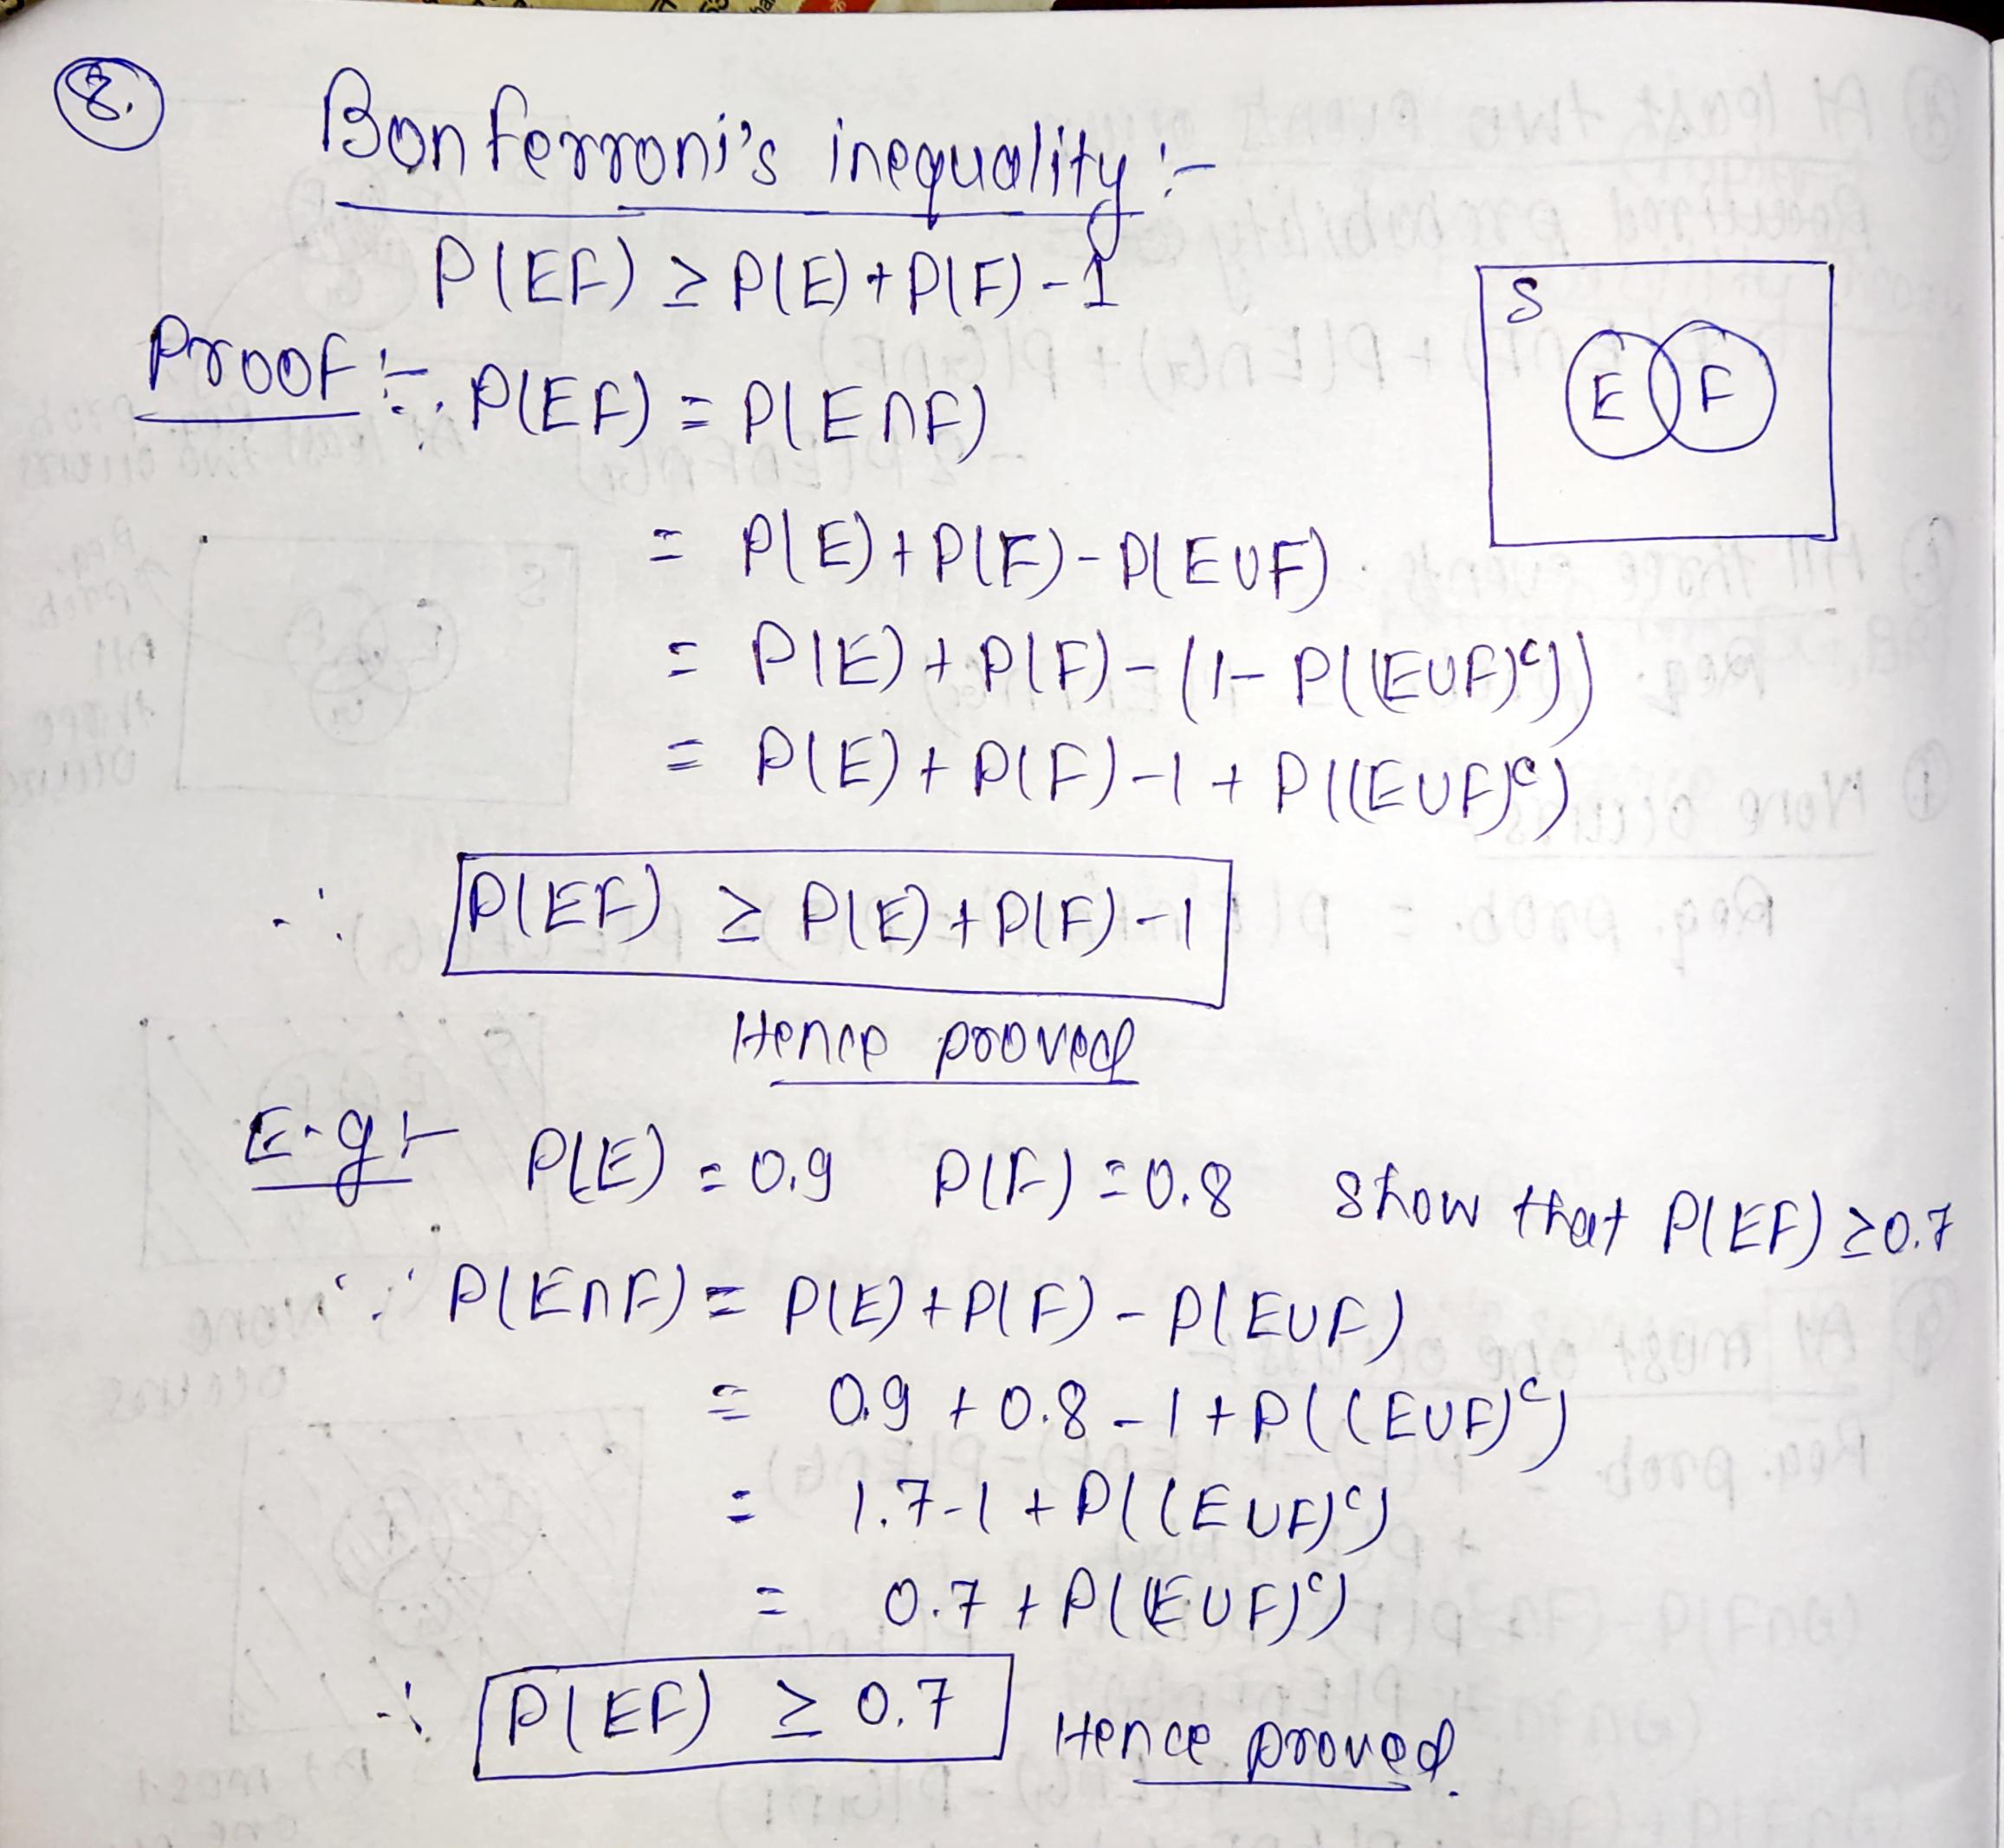 8.
Bonferroni's inequality :-
P(EF) ≥ P(E) + P(F) - 1
Proof :- ∵ P(EF) = P(E∩F)
S
E F
= P(E) + P(F) - P(E∪F)
= P(E) + P(F) - (1 - P((E∪F)ᶜ))
= P(E) + P(F) - 1 + P((E∪F)ᶜ)
∴ P(EF) ≥ P(E) + P(F) - 1
Hence proved
E.g :- P(E) = 0.9 P(F) = 0.8 Show that P(EF) ≥ 0.7
∵ P(E∩F) = P(E) + P(F) - P(E∪F)
= 0.9 + 0.8 - 1 + P((E∪F)ᶜ)
= 1.7 - 1 + P((E∪F)ᶜ)
= 0.7 + P((E∪F)ᶜ)
∴ P(EF) ≥ 0.7 Hence proved.